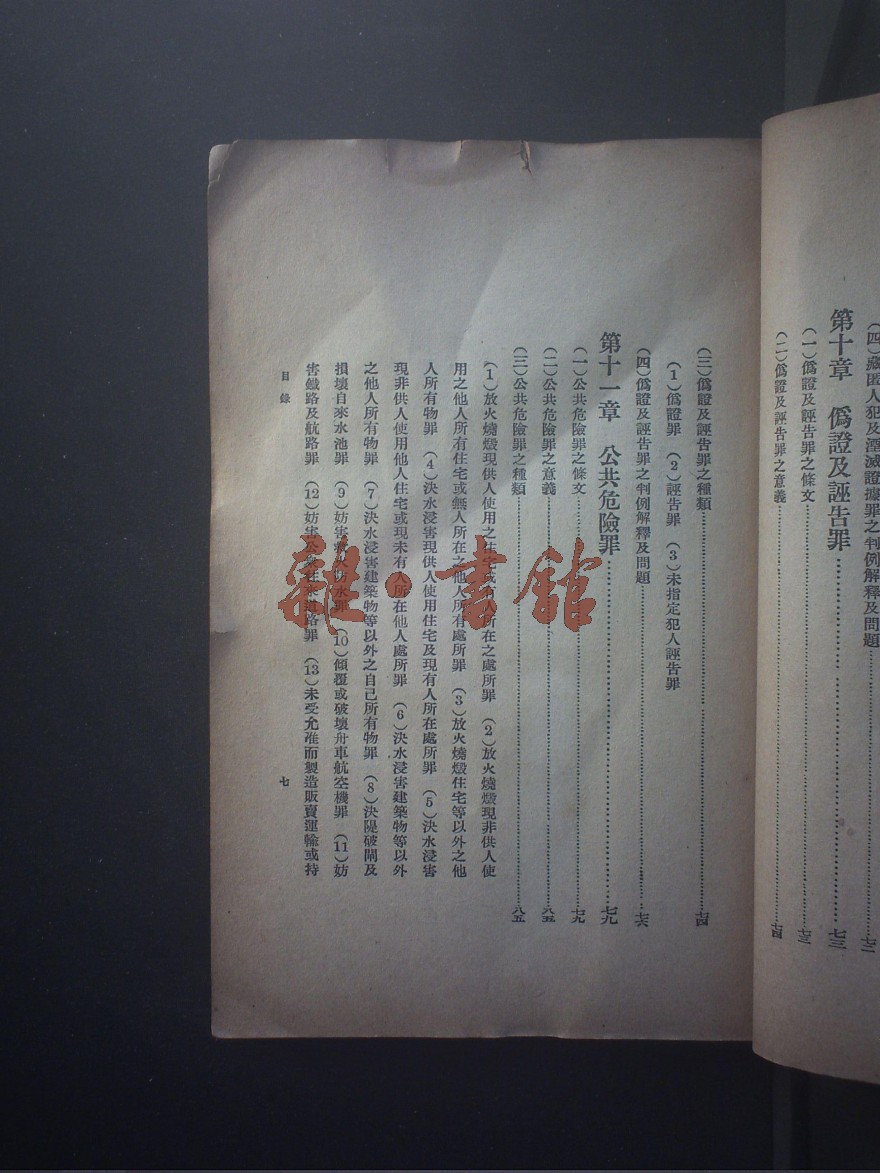 (四)藏匿人犯及湮滅證據罪之判例解釋及問題……七二
第十章 僞證及誣告罪……七三
(一)僞證及誣告罪之條文……七三
(二)僞證及誣告罪之意義……七四
(三)僞證及誣告罪之種類……七四
(1)僞證罪 (2)誣告罪 (3)未指定犯人誣告罪
(四)僞證及誣告罪之判例解釋及問題……七六
第十一章 公共危險罪……七九
(一)公共危險罪之條文……七九
(二)公共危險罪之意義……八五
(三)公共危險罪之種類……八五
(1)放火燒燬現供人使用之住宅或有人所在之處所罪 (2)放火燒燬現非供人使
用之他人所有住宅或無人所在之他人所有處所罪 (3)放火燒燬住宅等以外之他
人所有物罪 (4)決水浸害現供人使用住宅及現有人所在處所罪 (5)決水浸害
現非供人使用他人住宅或現未有人所在他人處所罪 (6)決水浸害建築物等以外
之他人所有物罪 (7)決水浸害建築物等以外之自己所有物罪 (8)決隄破閘及
損壞自來水池罪 (9)妨害救火防水罪 (10)傾覆或破壞舟車航空機罪 (11)妨
害鐵路及航路罪 (12)妨害公衆往來道路罪 (13)未受允准而製造販賣運輸或持
目錄
七
雜·書館